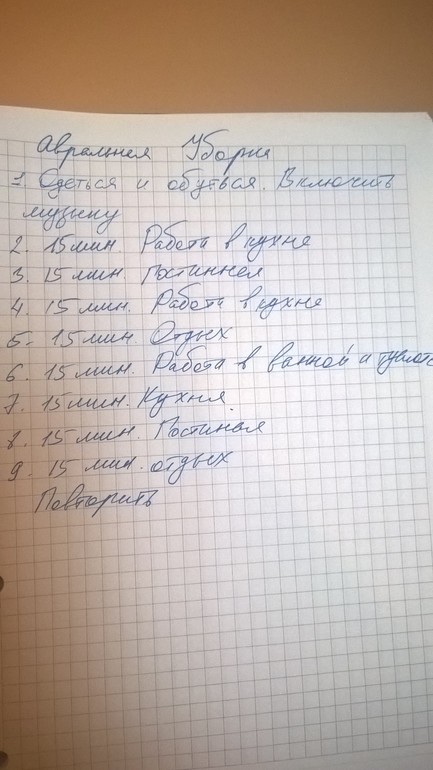 Авральная Уборка
1. Одеться и обуться. Включить
музыку
2. 15 мин. Работа в кухне
3. 15 мин Гостинная
4. 15 мин. Работа в кухне
5. 15 мин. Отдых
6. 15 мин. Работа в ванной и туалете
7. 15 мин. Кухня.
8. 15 мин. Гостиная
9. 15 мин. отдых
Повторить